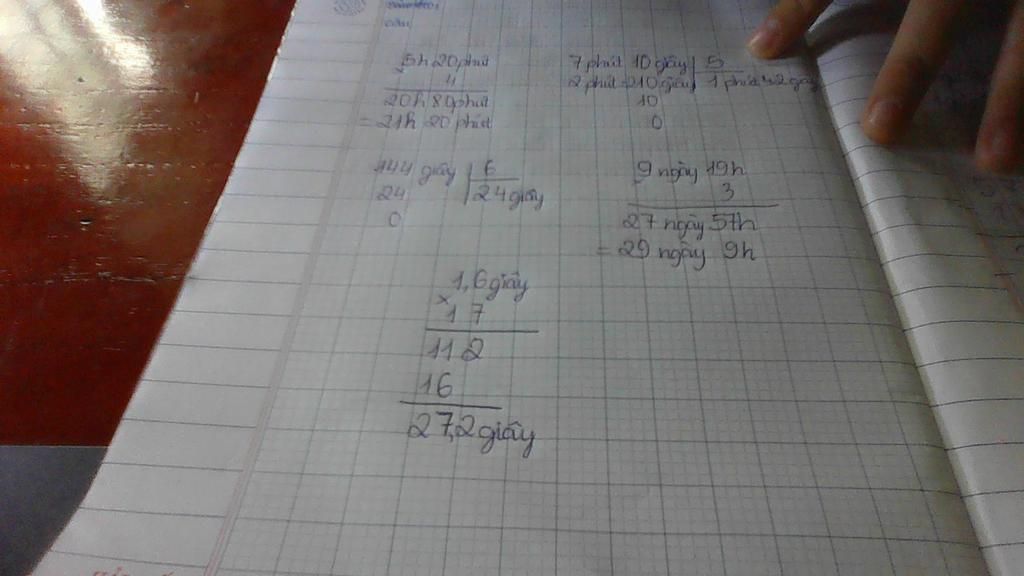 5h 20 phút
4
20h 80 phút
= 21h 20 phút
7 phút 10 giây 5
2 phút = 210 giây 1 phút 42 giây
10
0
144 giây 6
24 24 giây
0
9 ngày 19h
3
27 ngày 57h
= 29 ngày 9h
1,6 giây
×
1 7
11 2
16
27,2 giây